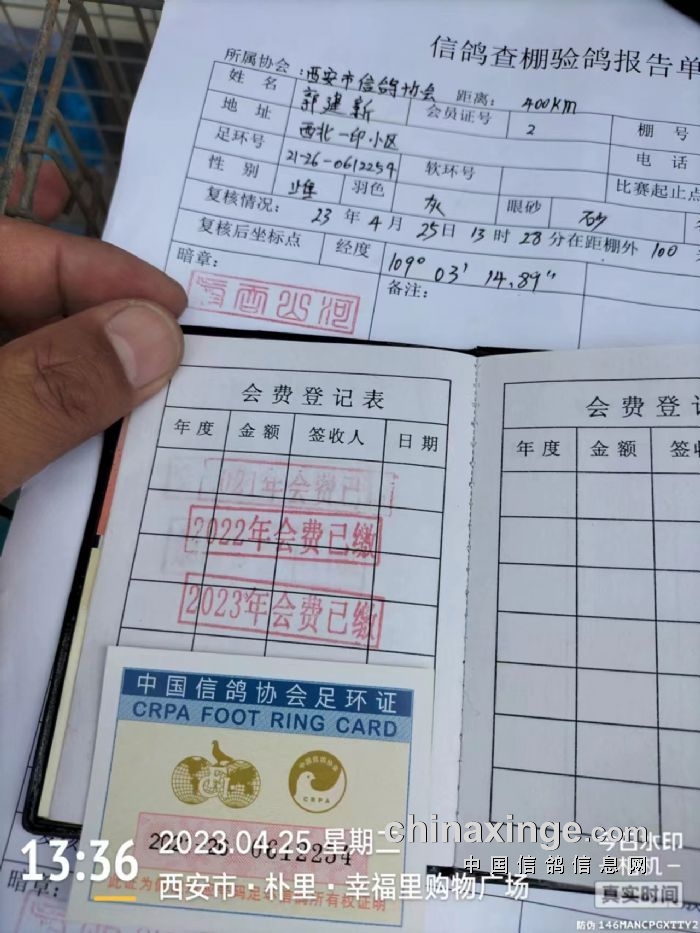 信鸽查棚验鸽报告单
所属协会：西安市信鸽协会 距离：400km
姓名 郭建新 会员证号 2 棚号
地址 西北一印小区 电话
足环号 21-26-0612254 软环号 比赛起止点
性别 雌 羽色 灰 眼砂 砂
复核情况： 23年4月25日13时28分在距棚外100
复核后坐标点 经度 109° 03' 14.89"
暗章： 备注：
会费登记表
年度 金额 签收人 日期
2021年会费已
2022年会费已缴
2023年会费已缴
会费登记
年度 金额 签收
中国信鸽协会足环证
CRPA FOOT RING CARD
中国信鸽协会
CRPA
0612254
所有权证明
13:36
2023.04.25 星期二
西安市·朴里·幸福里购物广场
chinaxinge.com
中国信鸽信息网
今日水印
相机
真实时间
防伪 146MANCPGXTTY2
暗章：